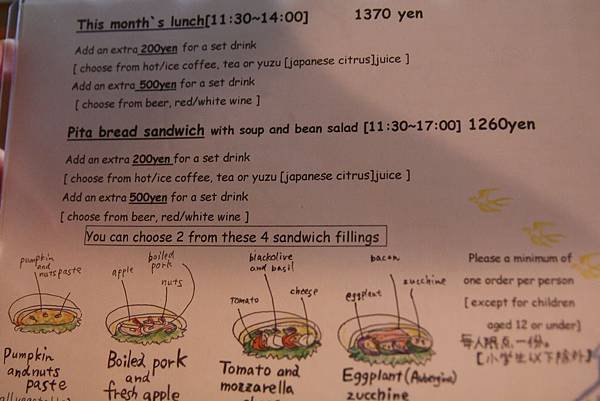 This month`s lunch[11:30~14:00] 1370 yen
Add an extra 200yen for a set drink
[ choose from hot/ice coffee, tea or yuzu [japanese citrus]juice ]
Add an extra 500yen for a set drink
[ choose from beer, red/white wine ]
Pita bread sandwich with soup and bean salad [11:30~17:00] 1260yen
Add an extra 200yen for a set drink
[ choose from hot/ice coffee, tea or yuzu [japanese citrus]juice ]
Add an extra 500yen for a set drink
[ choose from beer, red/white wine ]
You can choose 2 from these 4 sandwich fillings
pumpkin
and
nuts paste
apple
boiled
pork
nuts
blackolive
and basil
Tomato
cheese
bacon
eggplant
zucchine
Pumpkin
and nuts
paste
Boiled pork
and
fresh apple
Tomato and
mozzarella
Eggplant (Aubergine)
zucchine
Please a minimum of
one order per person
[ except for children
aged 12 or under]
每人限点一份。
【小学生以下除外】